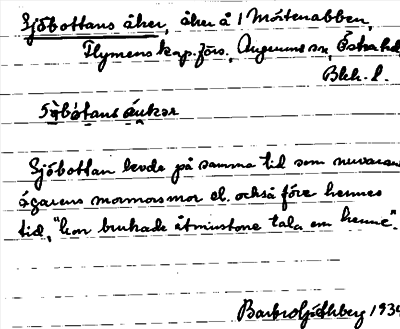 Sjöbottans åker, åker å 1 Mårtenabben,
Flymens kap.förs., Augerums sn, Östra hd
Blek. l.
Sjöbottan levde på samma tid som nuvarande
ägarens mormorsmor el. också före hennes
tid, "hon brukade åtminstone tala om henne".
1934